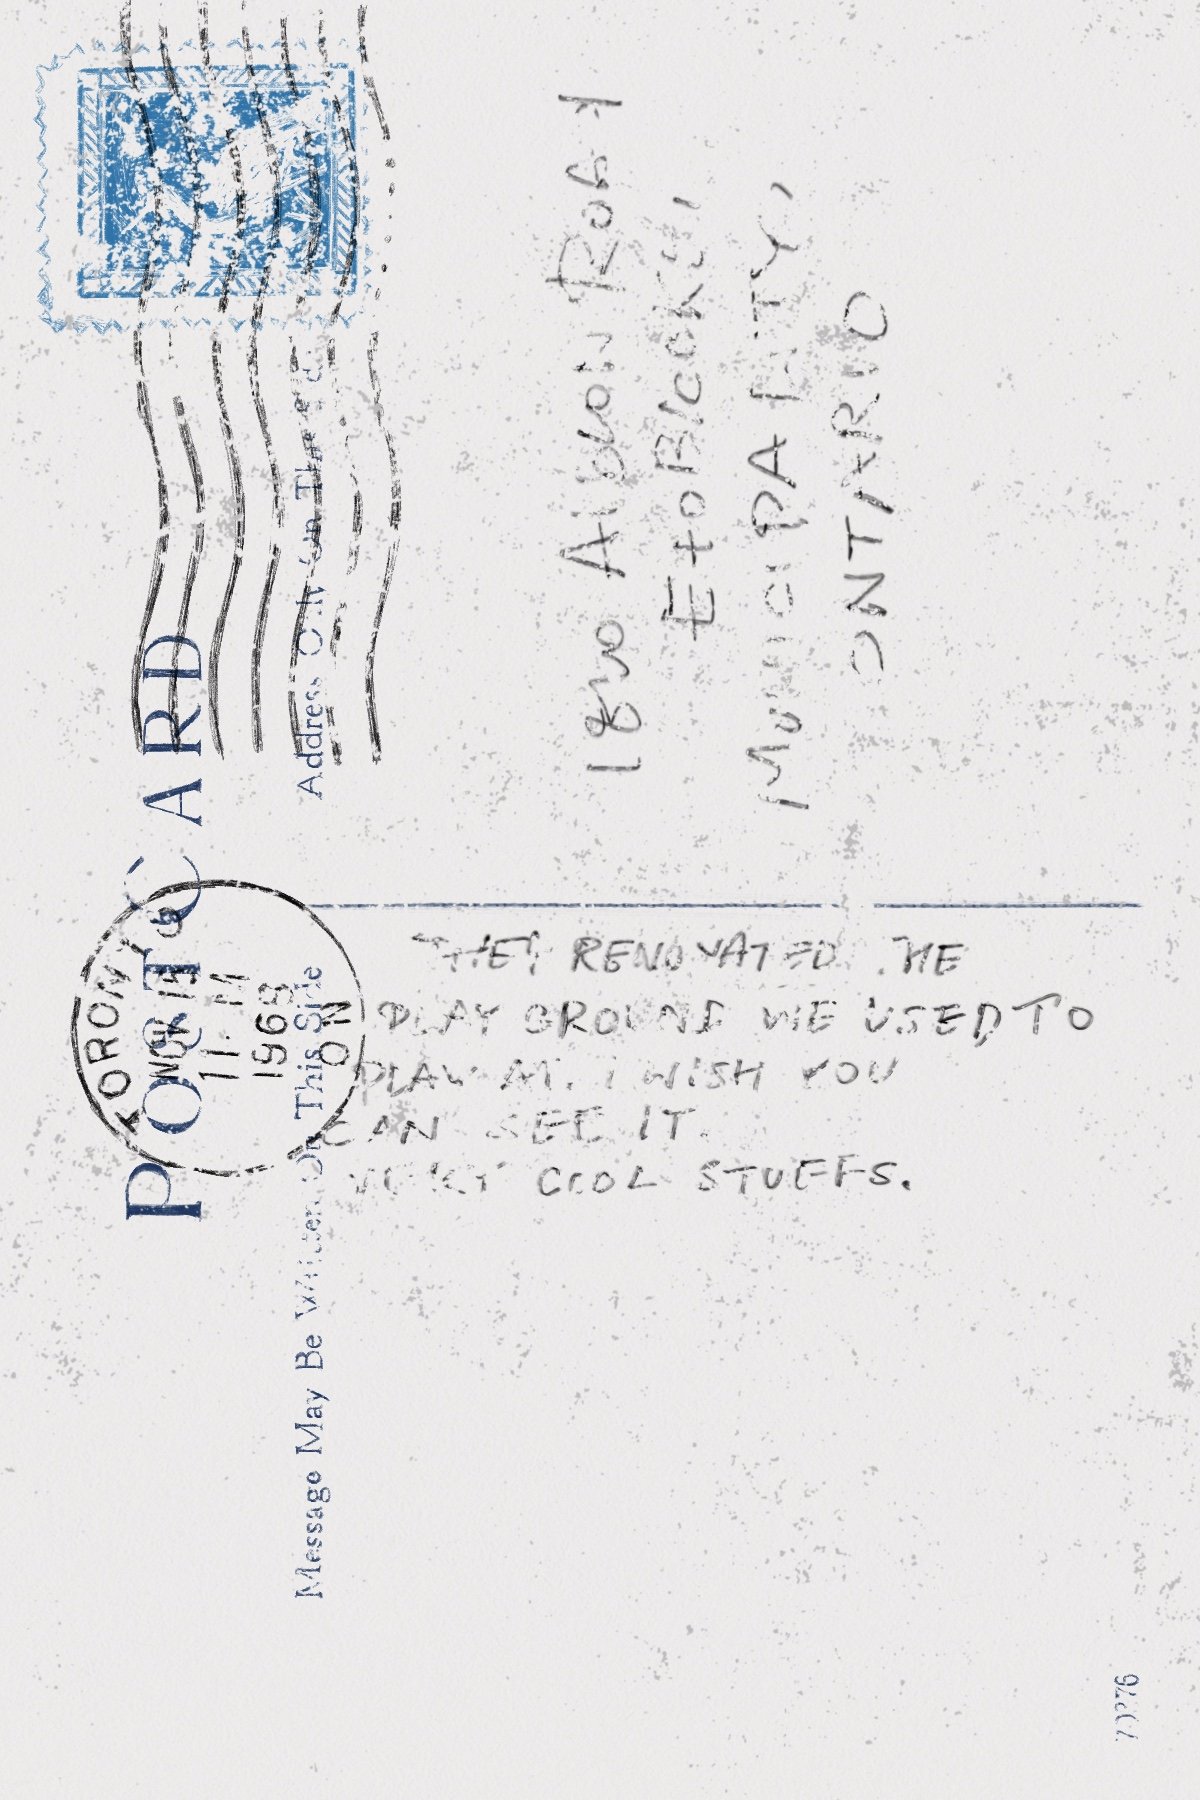 POST CARD
Message May Be Written On This Side
Address Only On The Side
TORONTO
NOV 15
11 M
1968
ON
THEY RENOVATED THE
PLAY GROUND WE USED TO
PLAY AT. I WISH YOU
CAN SEE IT.
VERY COOL STUFFS.
Albion
Municipality,
ONTARIO